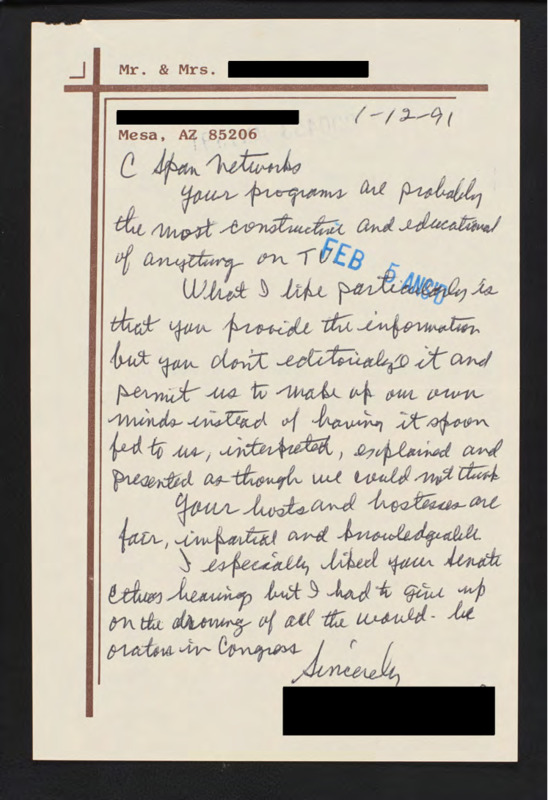 Mr. & Mrs.
1-12-91
Mesa, AZ 85206
C Span Networks
Your programs are probably
the most constructive and educational
of anything on TV
FEB 5 ANS'D
What I like particularly is
that you provide the information
but you don't editorialize it and
permit us to make up our own
minds instead of having it spoon
fed to us, interpreted, explained and
presented as though we could not think
Your hosts and hostesses are
fair, impartial and knowledgeable.
I especially liked your Senate
Ethics hearings but I had to give up
on the droning of all the would-be
orators in Congress
Sincerely